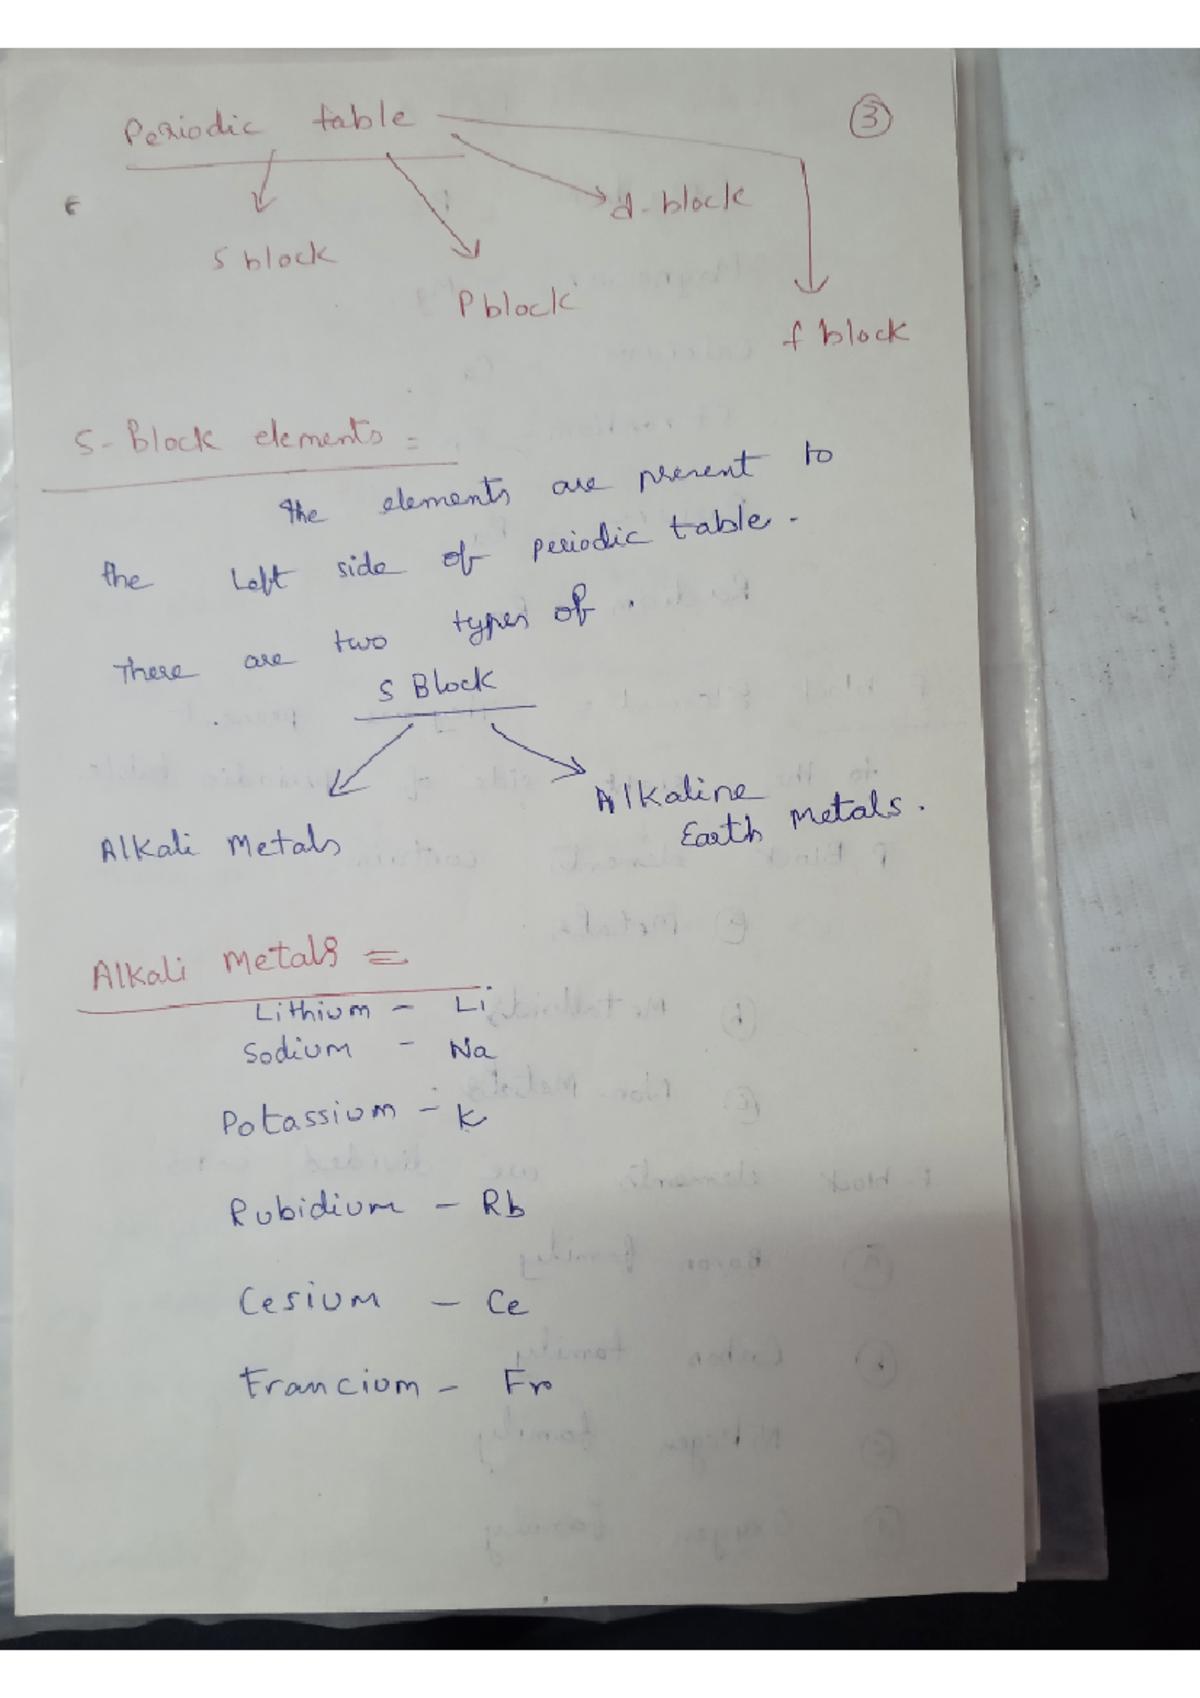 Periodic table
3
s block
P block
d-block
f block
S-Block elements =
The elements are present to
the Left side of periodic table.
There are two types of.
S Block
Alkali Metals
Alkaline
Earth Metals.
Alkali Metals =
Lithium - Li
Sodium - Na
Potassium - K
Rubidium - Rb
Cesium - Ce
Francium - Fr